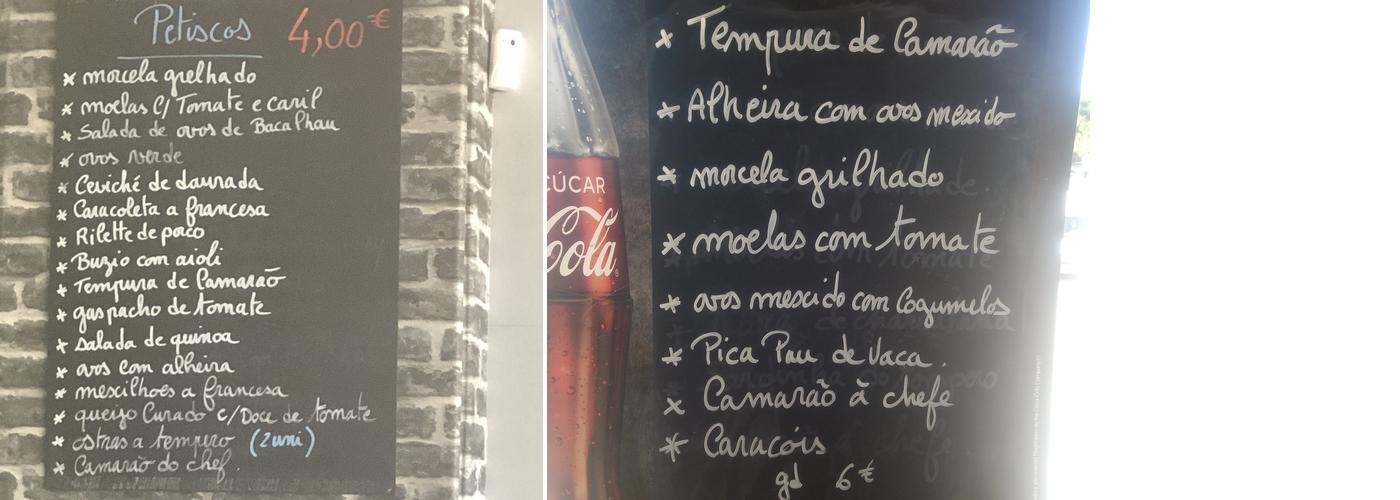 Petiscos 4,00€
* morcela grelhado
* moelas c/ Tomate e caril
* Salada de ovos de Bacalhau
* ovos verde
* Ceviché de daurada
* Caracoleta a francesa
* Rilette de paco
* Buzio com aioli
* Tempura de Camarão
* gaspacho de tomate
* Salada de quinoa
* ovos com alheira
* mexilhoes a francesa
* queijo Curado c/Doce de tomate
* ostras a tempero (2 uni)
* Camarão do chef.
* Tempura de Camarão
* Alheira com ovos mexido
* morcela grilhado
* moelas com tomate
* ovos mexido com Cogumelos
* Pica Pau de Vaca.
* Camarão à chefe
* Caracóis
gd 6€
ÇÚCAR
Cola